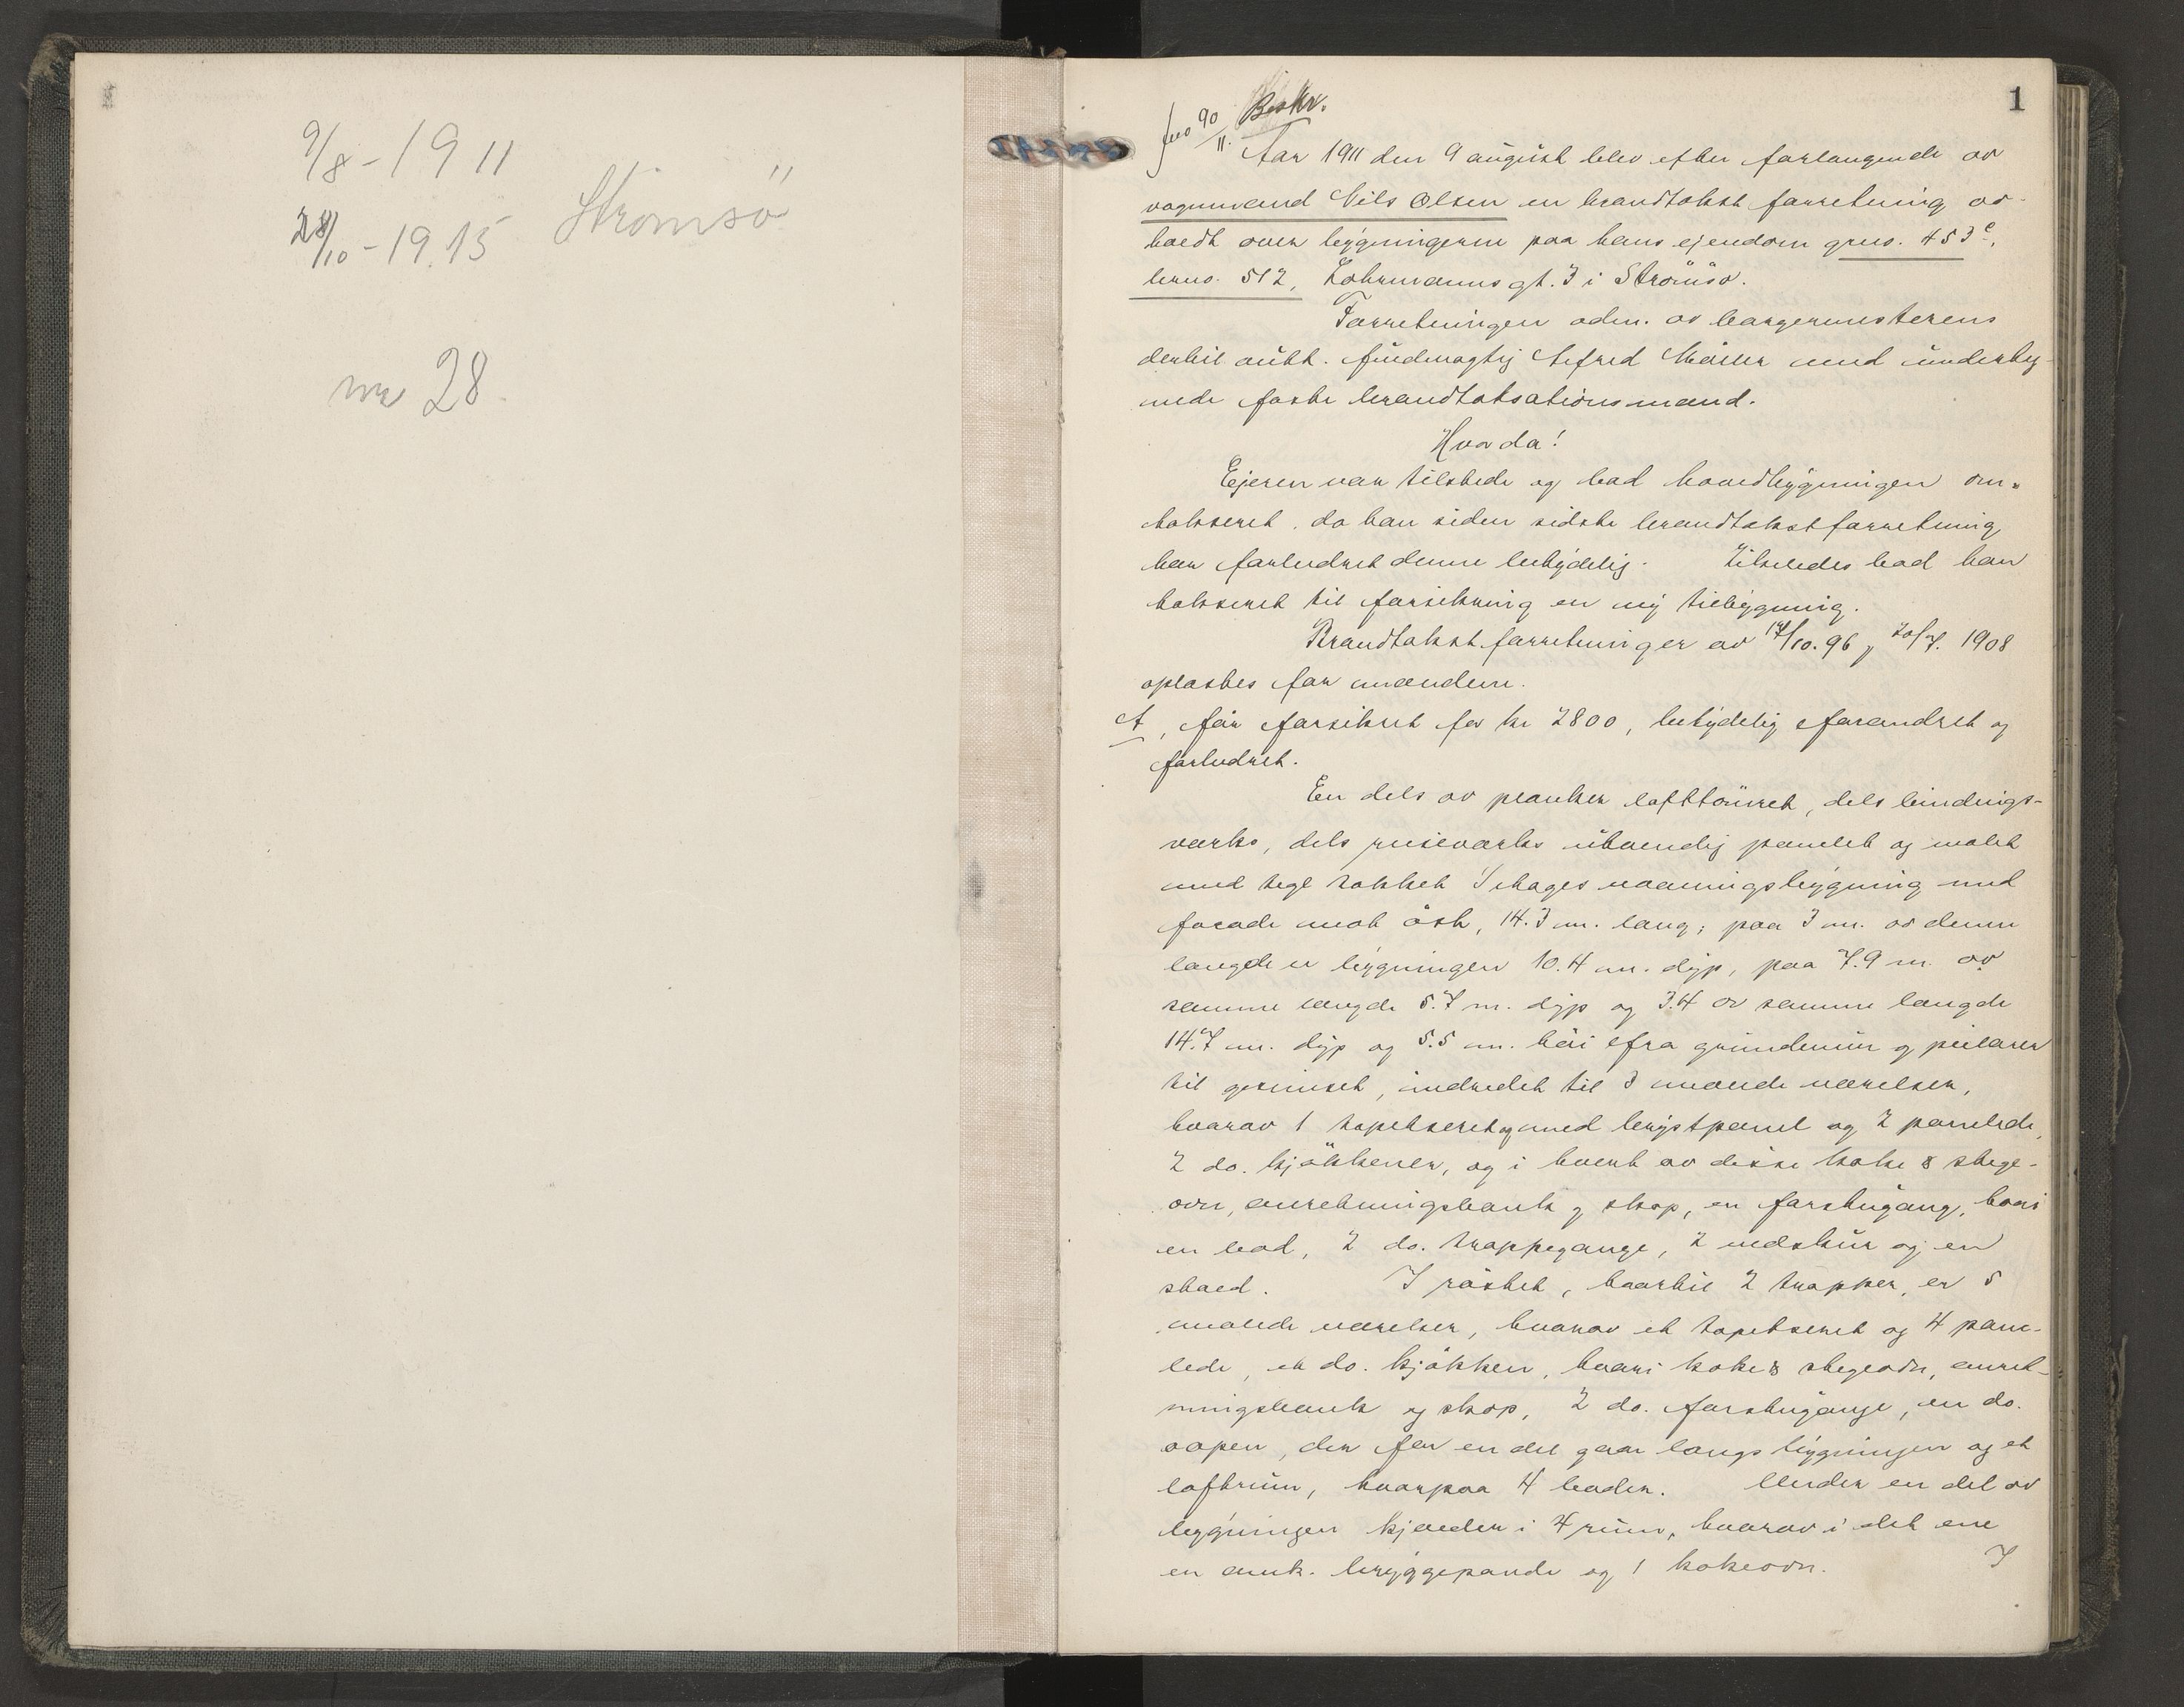 9/8 - 1911
28/10 - 19.15 Strømsö
nr 28.
1
jno 90/11. Beskr.
Aar 1911 den 9 august blev efter forlangende av
vognmand Nils Olsen en brandtakst forretning av-
holdt over bygningerne paa hans ejendom grno. 453c,
brno. 512, gt. 3 i Strömsö.
Forretningen adm. av borgermesterens
dertil aut. fuldmægtig Alfred med underteg-
nede faste brandtaksationsmænd.
Hvorda!
Ejeren var tilstede og bad hovedbygningen om-
takseret, da han siden sidste brandtakstforretning
har forbedret denne betydelig. Likeledes bad han
takseret til forsikring en ny tilbygning.
Brandtakstforretninger av 14/10. 96, 20/7. 1908
oplæstes for mændene.
A, før forsikret for kr 2800, betydelig forandret og
forbedret.
En dels av planker lafttømret, dels bindings-
verks, dels reisverks utvendig panelet og malet
med tegl tækket 1 etages vaaningsbygning med
facade mot öst, 14.3 m. lang; paa 3 m. av denne
længde er bygningen 10.4 m. dyp, paa 7.9 m. av
samme længde 5.7 m. dyp og 3.4 av samme længde
14.7 m. dyp og 5.5 m. höi fra grundmur og pilarer
til gesimset, indredet til 3 malede værelser,
hvorav 1 tapetseret og med brystpanel og 2 panelede,
2 do. kjökkener, og i hvert av disse koke & stege-
ovn, anretningsbænk og skap, en forstugang, hvori
en bod, 2 do. trappegange, 2 vedskur og en
stald. I röstet, hvortil 2 trapper, er 5
malede værelser, hvorav et tapetseret og 4 pane-
lede, et do. kjökken, hvori koke & stegeovn, anret-
ningsbænk og skap, 2 do. forstugange, en do.
aapen, der for en del gaar langs bygningen og et
loftrum, hvorpaa 4 boder. Under en del av
bygningen kjælder i 4 rum, hvorav i det ene
en amk. bryggepande og 1 kokeovn. I